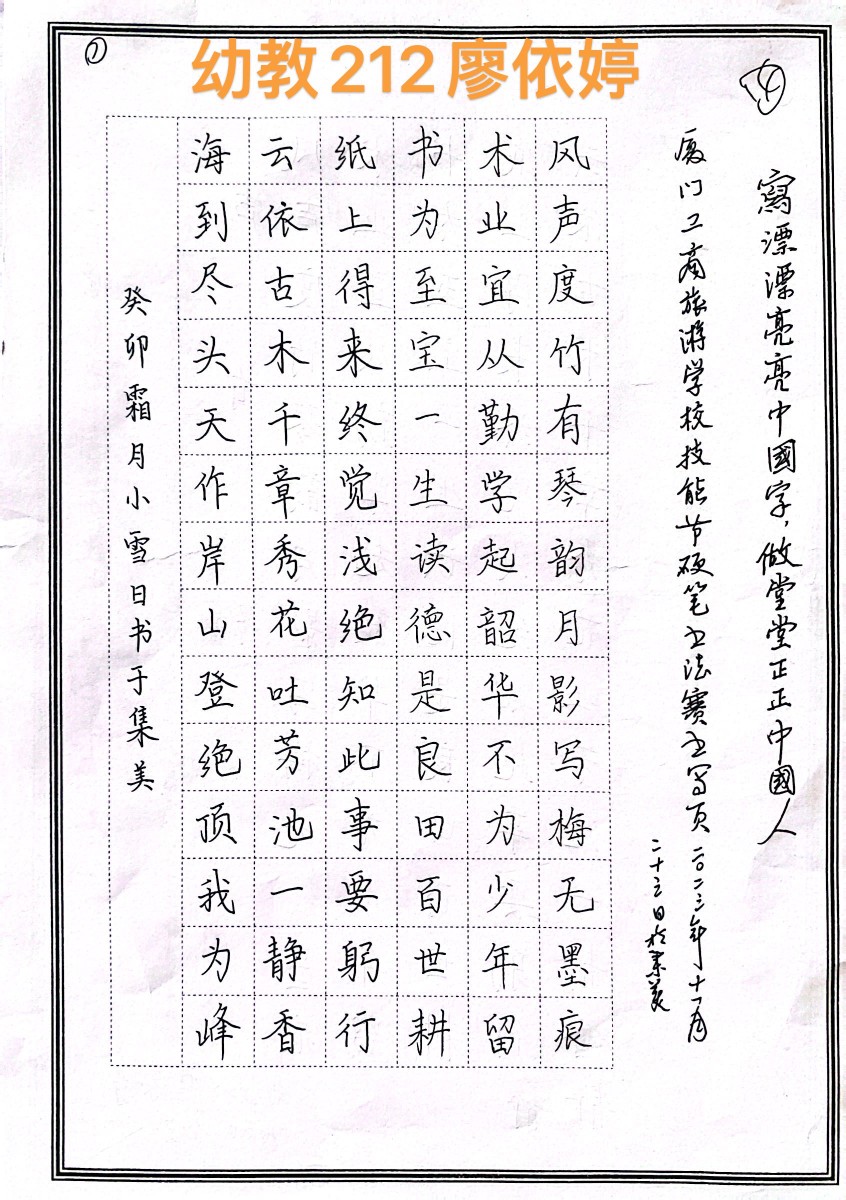 幼教212廖依婷
①
④
寫漂漂亮亮中國字，做堂堂正正中國人
厦门工商旅游学校技能节硬笔书法赛书写页 二〇二三年十一月
二十三日於集美
风声度竹有琴韵月影写梅无墨痕
术业宜从勤学起韶华不为少年留
书为至宝一生读德是良田百世耕
纸上得来终觉浅绝知此事要躬行
云依古木千章秀花吐芳池一静香
海到尽头天作岸山登绝顶我为峰
癸卯霜月小雪日书于集美